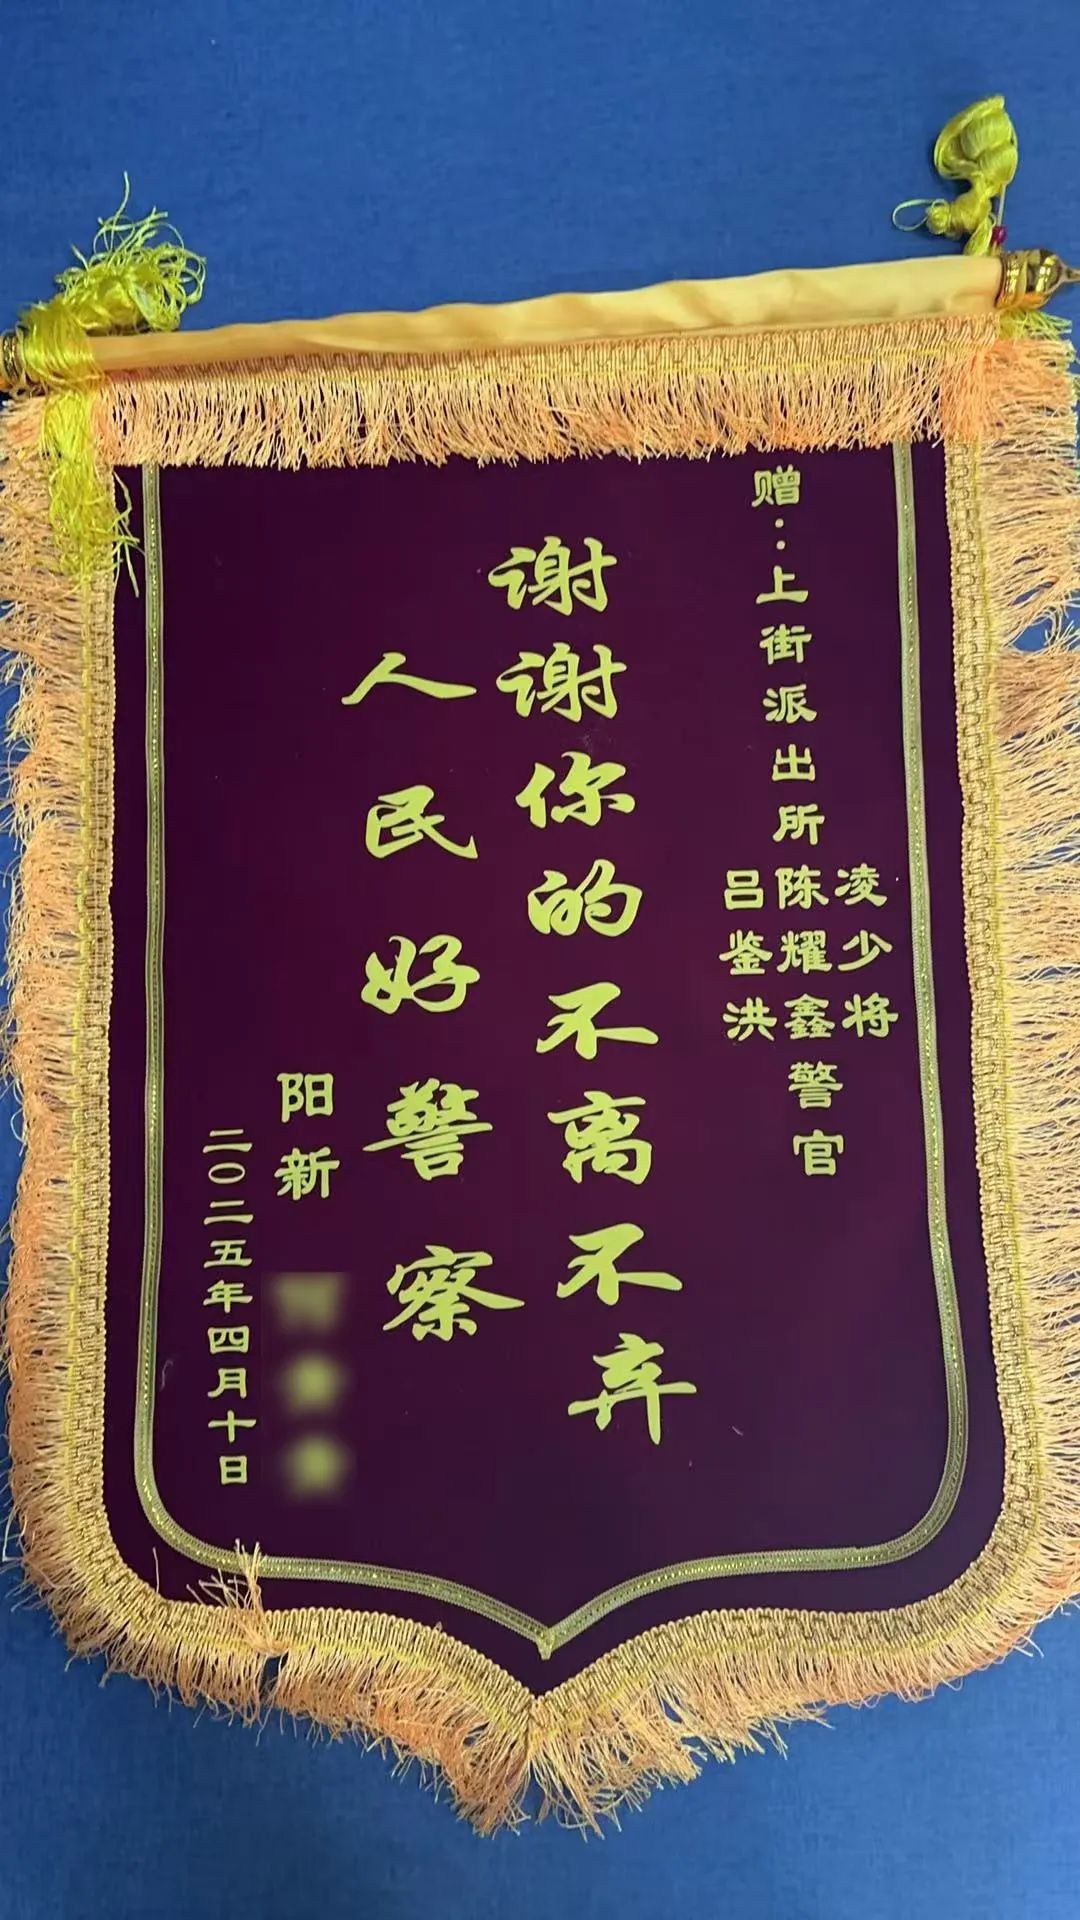 赠：上街派出所
凌少将
陈耀鑫警官
吕鉴洪
谢谢你的不离不弃
人民好警察
阳新
二〇二五年四月十日